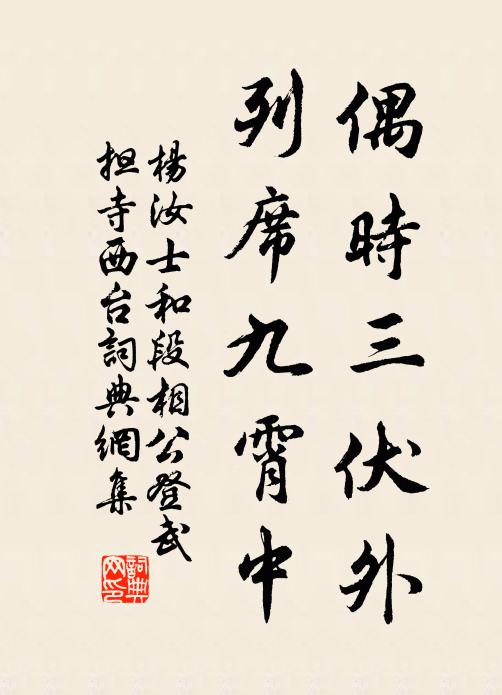 偶時三伏外
列席九霄中
楊汝士和段相公登武
担寺西台詞典網集
詞典网印